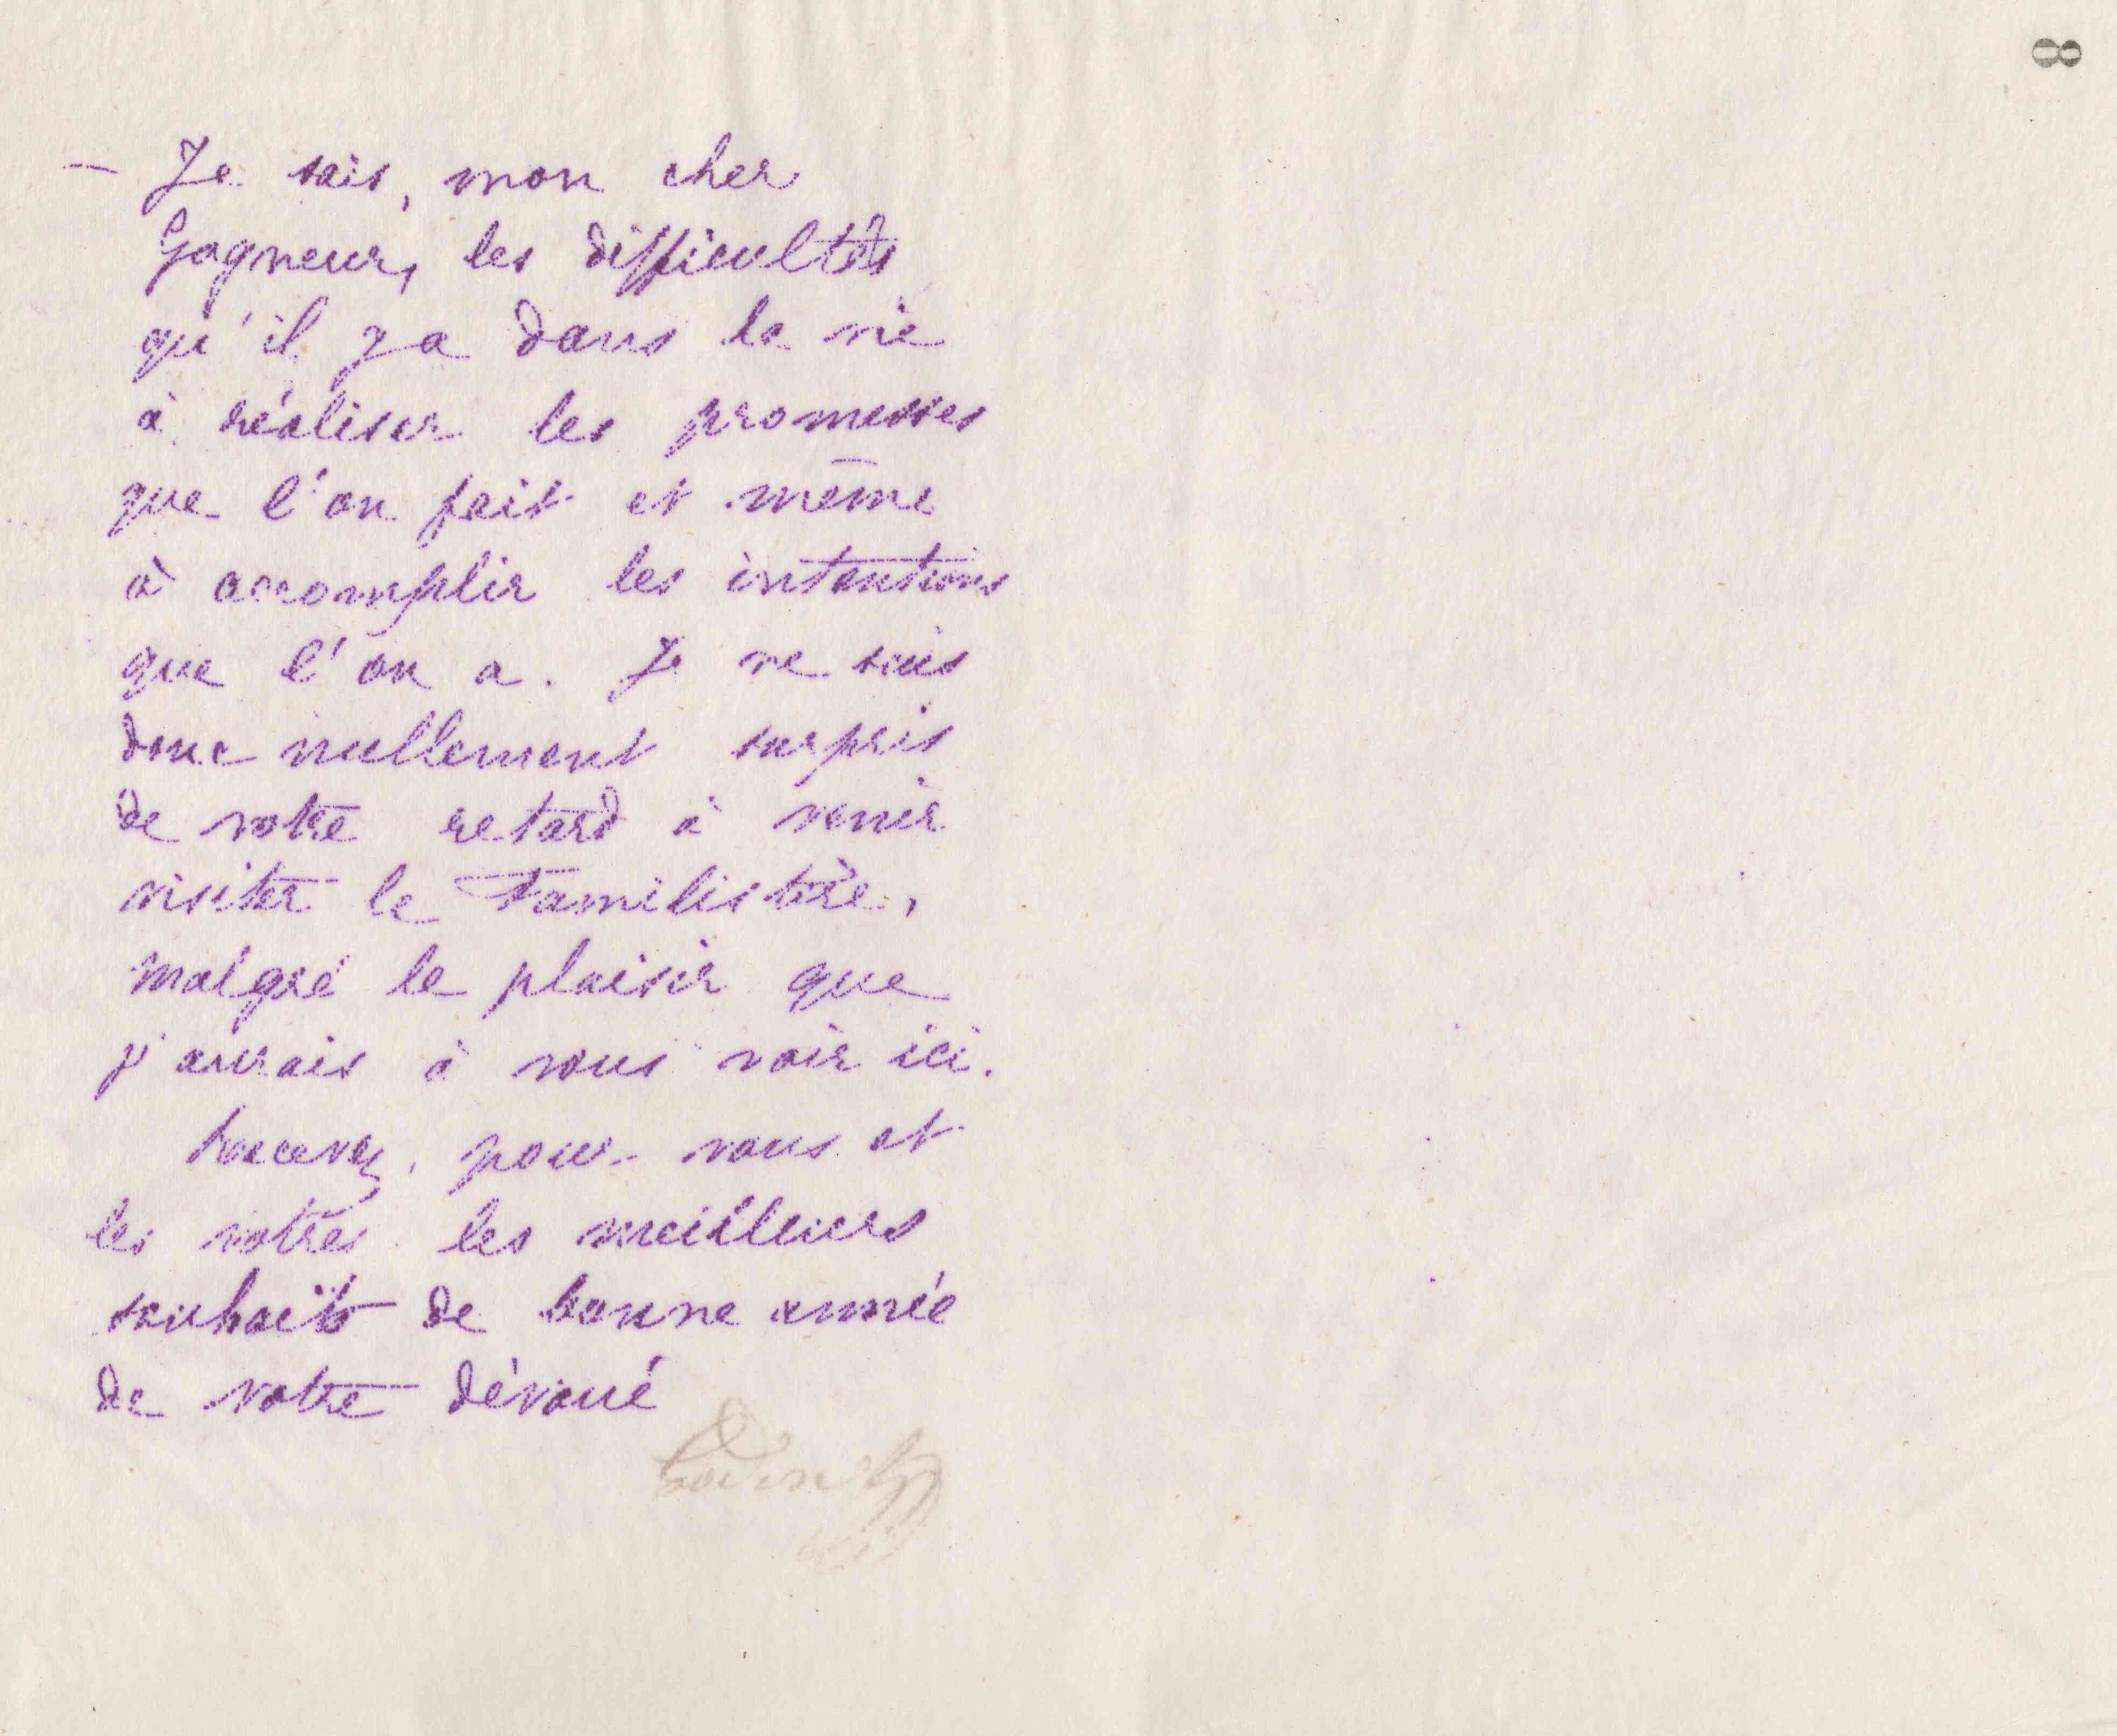 8
— Je sais, mon cher
Gagneur, les difficultés
qu'il y a dans la vie
à réaliser les promesses
que l'on fait et même
à accomplir les intentions
que l'on a. Je ne suis
donc nullement surpris
de votre retard à venir
visiter le Familistère,
malgré le plaisir que
j'aurais à vous voir ici.
Recevez, pour vous et
les vôtres les meilleurs
souhaits de bonne année
de votre dévoué
Godin